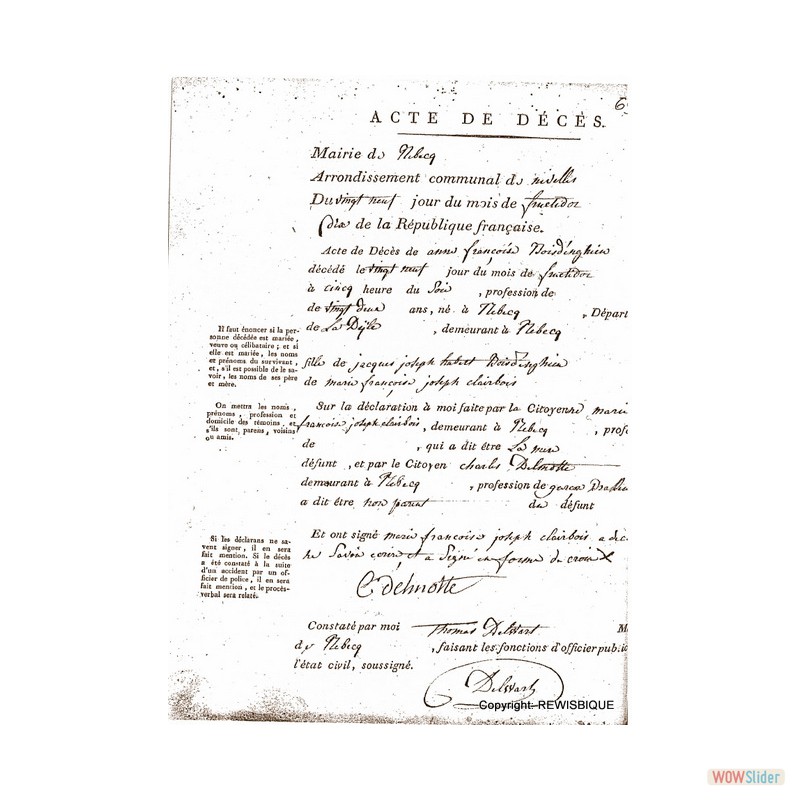 6
ACTE DE DÉCÈS.
Mairie de Rebecq
Arrondissement communal de nivelles
Du vingt neuf jour du mois de fructidor
dix de la République française.
Acte de Décès de anne françoise Boisdenghien
décédé le vingt neuf jour du mois de fructidor
à cincq heure du Soir , profession de
de vingt deux ans, né à Rebecq , Départ
de La Dyle , demeurant à Rebecq
Il faut énoncer si la per-
sonne décédée est mariée,
veuve ou célibataire ; et si
elle est mariée, les noms
et prénoms du survivant,
et, s'il est possible de le sa-
voir, les noms de ses père
et mère.
fille de jacques joseph hubert Boisdenghien
de marie françoise joseph clairbois
On mettra les noms,
prénoms, profession et
domicile des témoins, et
s'ils sont, parens, voisins
ou amis.
Sur la déclaration à moi faite par la Citoyenne marie
francoise joseph clairbois, demeurant à Rebecq , profe
de , qui a dit être La mere
défunt , et par le Citoyen charles Delmotte
demeurant à Rebecq , profession de garcon
a dit être non parent du défunt
Si les déclarans ne sa-
vent signer, il en sera
fait mention. Si le décès
a été constaté à la suite
d'un accident par un of-
ficier de police, il en sera
fait mention, et le procès-
verbal sera relaté.
Et ont signé marie francoise joseph clairbois a dec
ne Savoir ecrire et a Signé en forme de croix X
C delmotte
Constaté par moi Thomas Delwart M
de Rebecq , faisant les fonctions d'officier public
l'état civil, soussigné.
Delwart
Copyright:-REWISBIQUE
WOWSlider